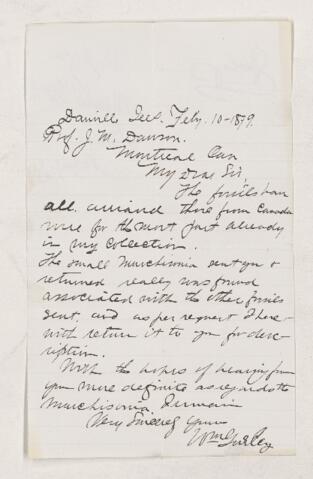 Danville Ills. Feby. 10 - 1879.
Prof. J. W. Dawson.
Montreal Can
My Dear Sir,
The fossils have
all arrived those from Canada
were for the most part already
in my collection.
The small Murchisonia sent you &
returned really was found
associated with the other fossils
sent, and as per request I here-
with return it to you for desc-
ription.
With the hopes of hearing from
you more definite as regards the
Murchisonia, I remain
Very Sincerely yours
Wm Gurley